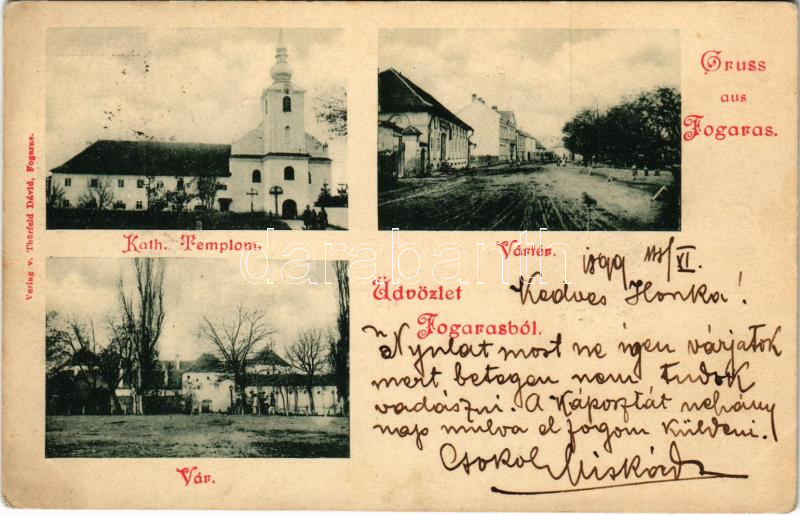 Gruss
aus
Fogaras.
Verlag v. Thierfeld Dávid, Fogaras.
Kath. Templom.
Vártér.
Vár.
Üdvözlet
Fogarasból.
darabanth
1899 XI.
Kedves Ilonka!
Nyulat most ne igen várjatok
mert betegen nem tudok
vadászni. A Káposztát nehány
nap mulva el fogom küldeni.
Csokol Miskátok